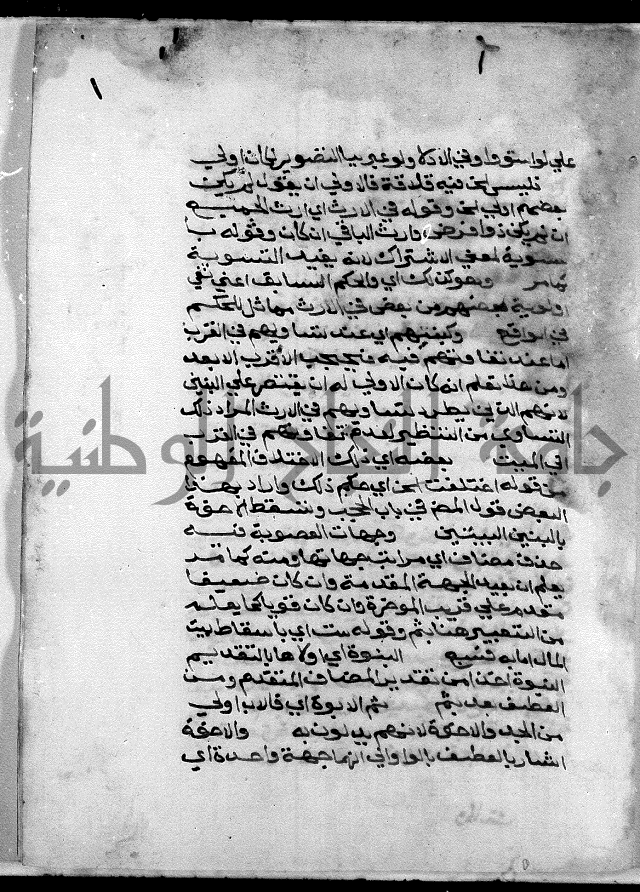 علي لو استووا في الادلا ولو عبر بيا التصوير لكان اولي
فليس لحن فيه قلاقة فالاولي ان يقول لم يكن
بعضهم اولي الخ وقوله في الارث اي ارث الجميع
ان لم يكن ذو فرض وارث الباقي ان كان وقوله با
لسوية لمعني الاشتراك لانه يفيد التسوية
كما مر وهو كذلك اي والحكم السابق اعني نفي
اولوية بعضهم من بعض في الارث مماثل للحكم
في الواقع وكبنتهم اي عند تساويهم في القرب
اما عند تفاوتهم فيه فيحجب الأقرب الابعد
ومن هذا تعلم انه كان الاولي له ان يقتصر علي البنتي
لانهم الذين يطرد تساويهم في الارث المراد ذلك
التساوي من التنظير لعدة تفاوتهم في القرب
في البيت بعضه اي ذلك الاختلاف المفهوم
من قوله اختلفت الخ اي حكم ذلك واراد بهذا
البعض قول المص في باب الحجب وتسقط الاخوة
بالبنين البيتين وجهات العصوبة فيه
حذف مضاف اي مراتب جهاتها ومنه كما قد
يعلم ان بعيد الجهة المقدمة وان كان ضعيفا
متقدم علي قريب الموخرة وان كان قويا كما يعلم
من التعبير هنا بثم وقوله ست اي باسقاط بيت
المال اما به فسبع البنوة اي اولاها بالتقديم
البنوة اخذا من تقدير المضاف المتقدم ومن
العطف بعد بثم ثم الابوة اي فالاب اولي
من الجد والاخوة لانهم يدلون به والاخوة
اشار بالعطف بالواو الي انهما جهة واحدة اي
جامعة النجاح الوطنية